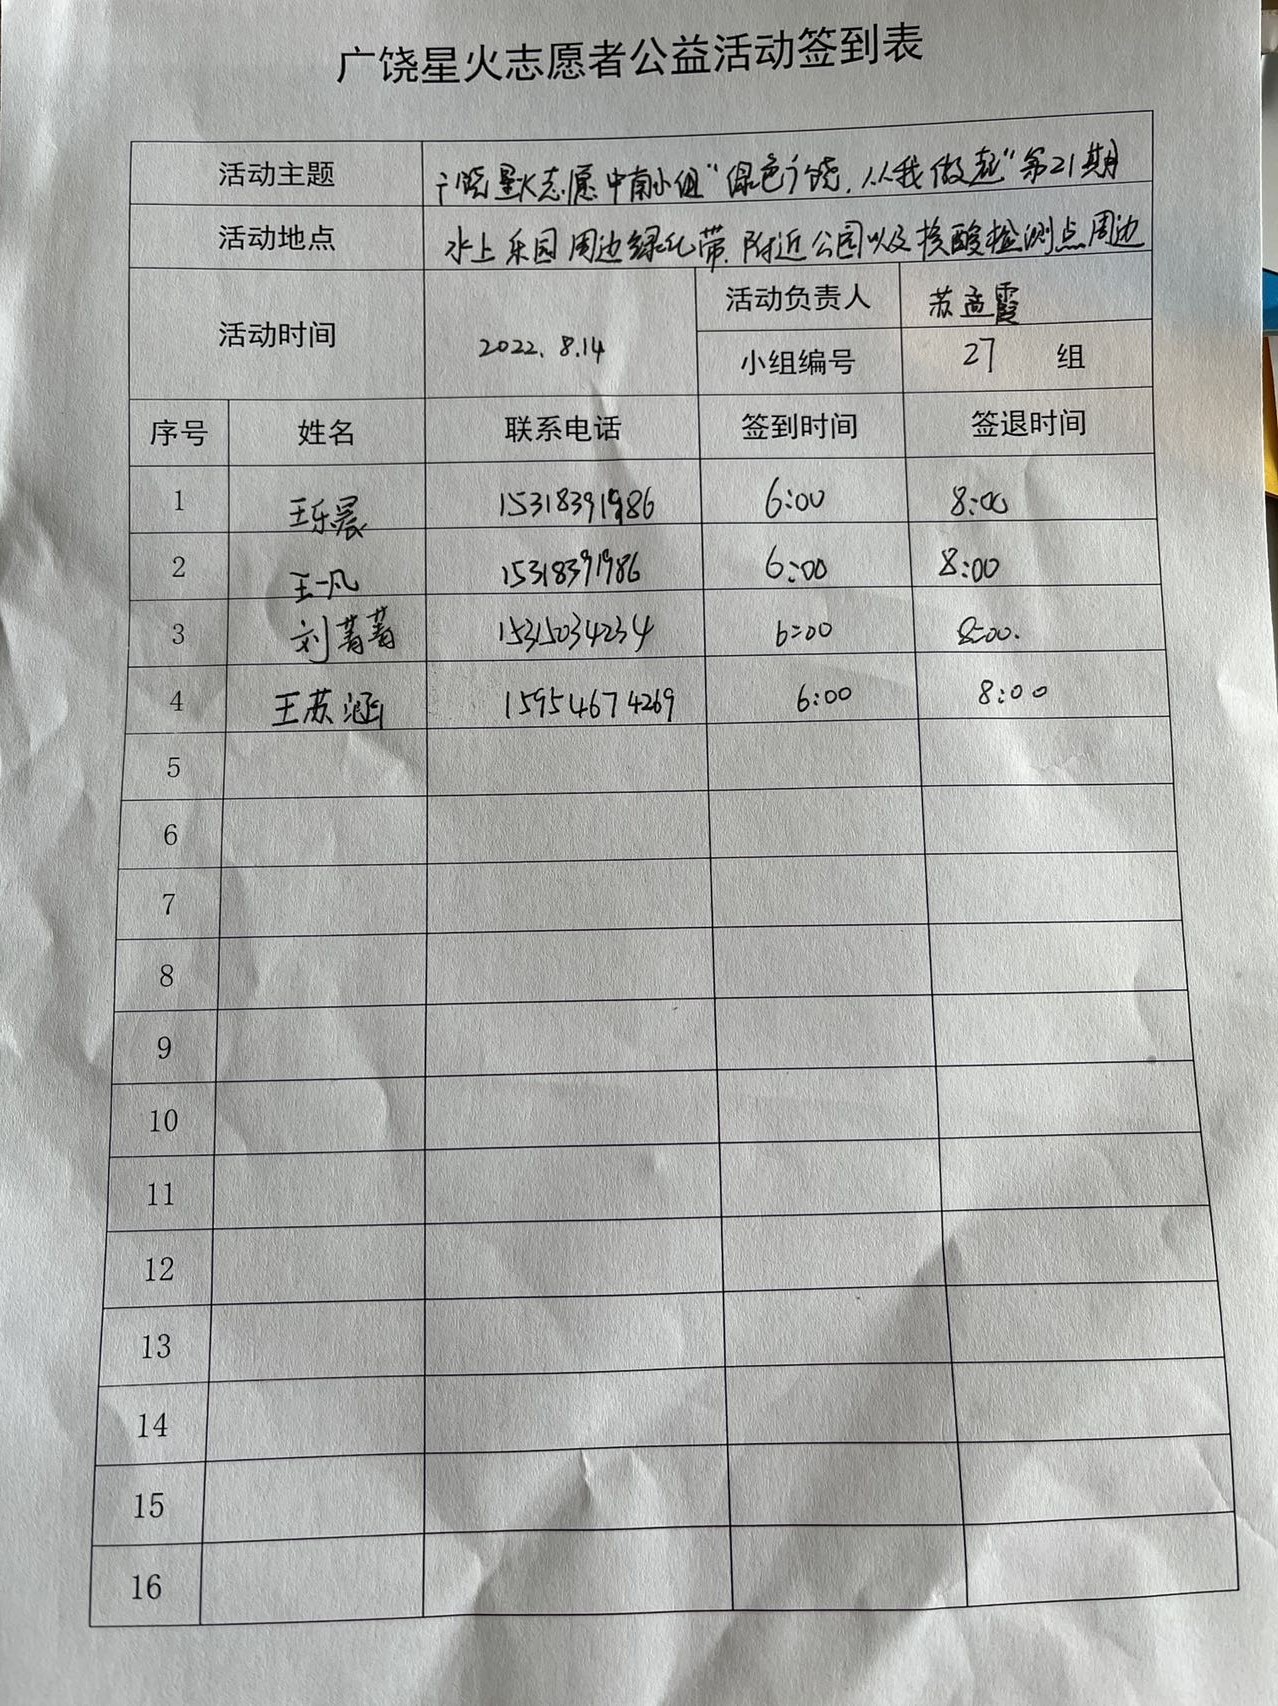 广饶星火志愿者公益活动签到表
活动主题 广饶星火志愿中南小组“绿色广饶,从我做起”第21期
活动地点 水上乐园周边绿化带.附近公园以及核酸检测点周边
活动时间 2022.8.14 活动负责人 苏孟霞
小组编号 27 组
序号 姓名 联系电话 签到时间 签退时间
1 王乐晨 15318391986 6:00 8:00
2 王一凡 15318391986 6:00 8:00
3 刘菁菁 15315034234 6:00 8:00.
4 王苏涵 15954674269 6:00 8:00
5
6
7
8
9
10
11
12
13
14
15
16